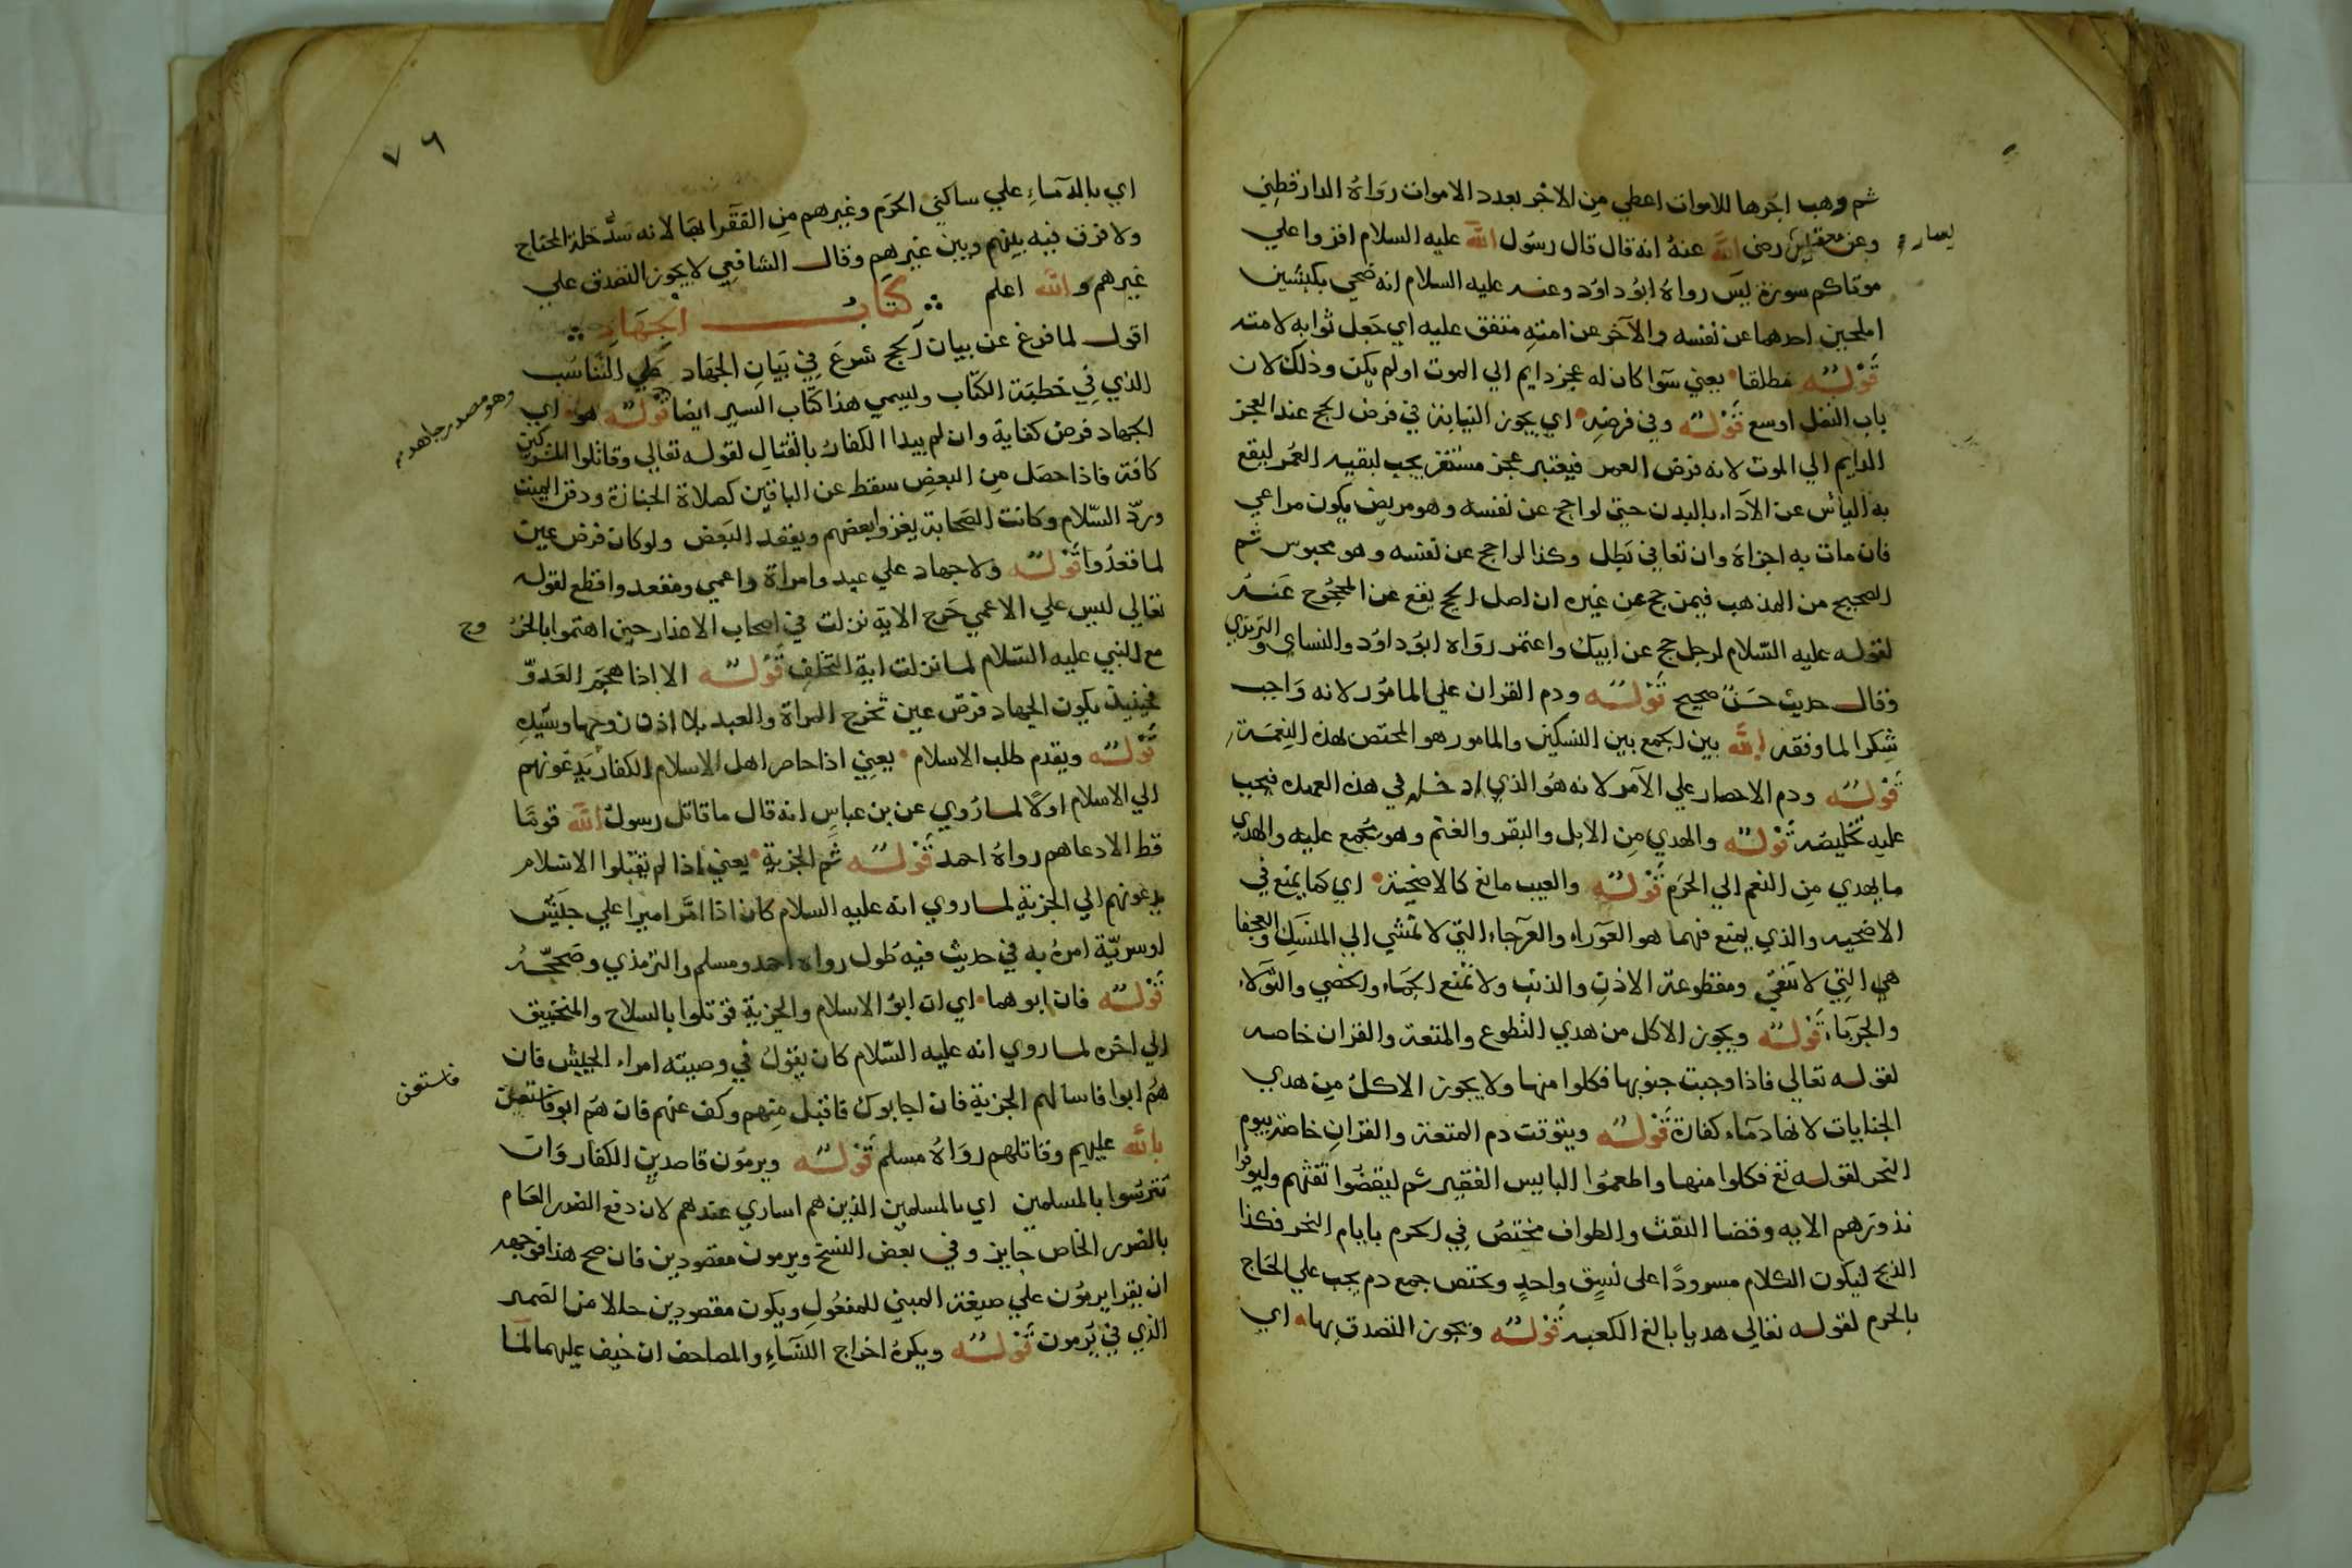 ثم وهب اجرها للاموات اعطي من الاجر بعدد الاموات رواه الدارقطني
وعن معقل بن يسار رضى الله عنه انه قال قال رسول الله عليه السلام اقروا علي
موتاكم سورة يس رواه ابو داود وعنه عليه السلام انه ضحي بكبشين
املحين احدهما عن نفسه والآخر عن امته متفق عليه اي جعل ثوابه لامته
قوله مطلقا يعني سوا كان له عجز دايم الي الموت اولم يكن وذلك لان
باب النفل اوسع قوله وفي فرضه اي يجوز النيابة في فرض الحج عند العجز
الدايم الي الموت لانه فرض العمر فيعتبر عجز مستغرب لبقيه العمر ليقع
به الياس عن الآداء بالبدن حتي لواحج عن نفسه وهو مريض يكون مراعي
فان مات به اجزاه وان تعافي بطل وكذا لو احج عن نفسه وهو محبوس ثم
الصحيح من المذهب فيمن حج عن غيره ان اصل الحج يقع عن المحجوج عنه
لقوله عليه السلام لرجل حج عن ابيك واعتمر رواه ابو داود والنساي والترمذي
وقال حديث حسن صحيح قوله ودم القران علي المامور لانه واجب
شكرا لما وفقه الله بين الجمع بين النسكين والمامور هو المختص بهذه النعمة
قوله ودم الاحصار علي الآمر لانه هو الذي ادخله في هذه العهده فيجب
عليه تخليصه قوله والهدي من الابل والبقر والغنم وهو مجمع عليه والهدي
ما يهدي من النعم الي الحرم قوله والعيب مانع كالاضحية اي كما يمنع في
الاضحيه والذي يمنع فيهما هو العوراء والعرجاء التي لا تمشي الي المنسك والعجفا
هي التي لا تنقي ومقطوعة الاذن والذنب ولا تمنع الجماء والخصي والثولاء
والجربا قوله ويجوز الاكل من هدي التطوع والمتعة والقران خاصه
لقوله تعالي فاذا وجبت جنوبها فكلوا منها ولا يجوز الاكل من هدي
الجنايات لانها دماء كفارة قوله ويتوقت دم المتعة والقران خاصة بيوم
النحر لقوله تع فكلوا منها واطعموا البايس الفقير ثم ليقضوا تفثهم وليوفوا
نذورهم الايه وقضا التفث والطواف مختص في الحرم بايام النحر فكذا
الذبح ليكون الكلام مسرودا على نسق واحد ويختص جمع دم يجب علي الحاج
بالحرم لقوله تعالي هديا بالغ الكعبه قوله ويجوز التصدق بها اي
٧٦
اي بالدماء علي ساكني الحرم وغيرهم من الفقرا بها لانه سد خلة المحتاج
ولا فرق فيه بينهم وبين غيرهم وقال الشافعي لا يجوز التصدق علي
غيرهم والله اعلم كتاب الجهاد
اقول لما فرغ عن بيان الحج شرع في بيان الجهاد علي التناسب
الذي في خطبة الكتاب ويسمي هذا كتاب السير ايضا قوله هو اي
وهو مصدر جاهد
الجهاد فرض كفاية وان لم يبدا الكفار بالقتال لقوله تعالي وقاتلوا المشركين
كافة فاذا حصل من البعض سقط عن الباقين كصلاة الجنازة ودفن الميت
ورد السلام وكانت الصحابة يغزوا بعضهم ويقعد البعض ولو كان فرض عين
لما قعدوا قوله ولا جهاد علي عبد وامراة واعمي ومقعد واقطع لقوله
تعالي ليس علي الاعمي حرج الاية نزلت في اصحاب الاعذار حين اهتموا بالخر
وج
مع النبي عليه السلام لما نزلت اية التخلف قوله الا اذا هجم العدو
فحينيذ يكون الجهاد فرض عين تخرج المراة والعبد بلا اذن زوجها وسيده
قوله ويقدم طلب الاسلام يعني اذا حاصر اهل الاسلام الكفار يدعونهم
الي الاسلام اولا لما روي عن بن عباس انه قال ما قاتل رسول الله قوما
قط الا دعاهم رواه احمد قوله ثم الجزية يعني اذا لم يقبلوا الاسلام
يدعونهم الي الجزية لما روي انه عليه السلام كان اذا امر اميرا علي جيش
او سرية امره به في حديث فيه طول رواه احمد ومسلم والترمذي وصححه
قوله فان ابوهما اي ان ابو الاسلام والجزية قوتلوا بالسلاح والمنجنيق
الي اخره لما روي انه عليه السلام كان يقول في وصيته امراء الجيش فان
هم ابوا فاسالهم الجزية فان اجابوك فاقبل منهم وكف عنهم فان هم ابو فاستعن
فاستعن
بالله عليهم وقاتلهم رواه مسلم قوله ويرمون قاصدين الكفار وان
تترسوا بالمسلمين اي بالمسلمين الذين هم اساري عندهم لان دفع الضرر العام
بالضرر الخاص جايز وفي بعض النسخ ويرمون مقصودين فان صح هذا فوجهه
ان يقرا يرمون علي صيغة المبني للمفعول ويكون مقصودين حالا من الضمير
الذي في يرمون قوله ويكره اخراج النساء والمصاحف ان خيف عليهما لما